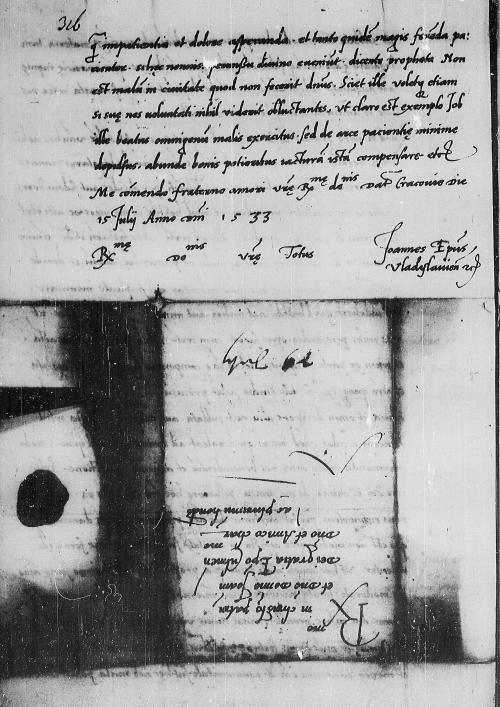 326
q impatientia et dolore asperanda. et tanto quidẽ magis ferẽda pa:
cienter. sine divino eveniũt. dicente propheta Non
est malũ in civitate quod non fecerit dñs. Sciet ille volẽtẽ etiam
si suę nos voluntati nihil viderit obluctantes, ut claro est exemplo Job
ille beatus omnigenis malis exercitus. sed de arce pacientię minime
depulsus. abunde bonis potioribus iacturã istã compensare etc̃
Me comẽndo fraterno amori vrę Rxmę dõnis Dat̃ Cracovie Die
15 Julij Anno dñi 1533
Rxmę Donis vrę Totus
Joannes Epũs
Vladislavieñ scp̃
July 61
Rxmo
in christo patri
et dño Domno Joañ
Dei gratia Epo culmeñ
dño et Amico char
mo
ac plurimũ hondo